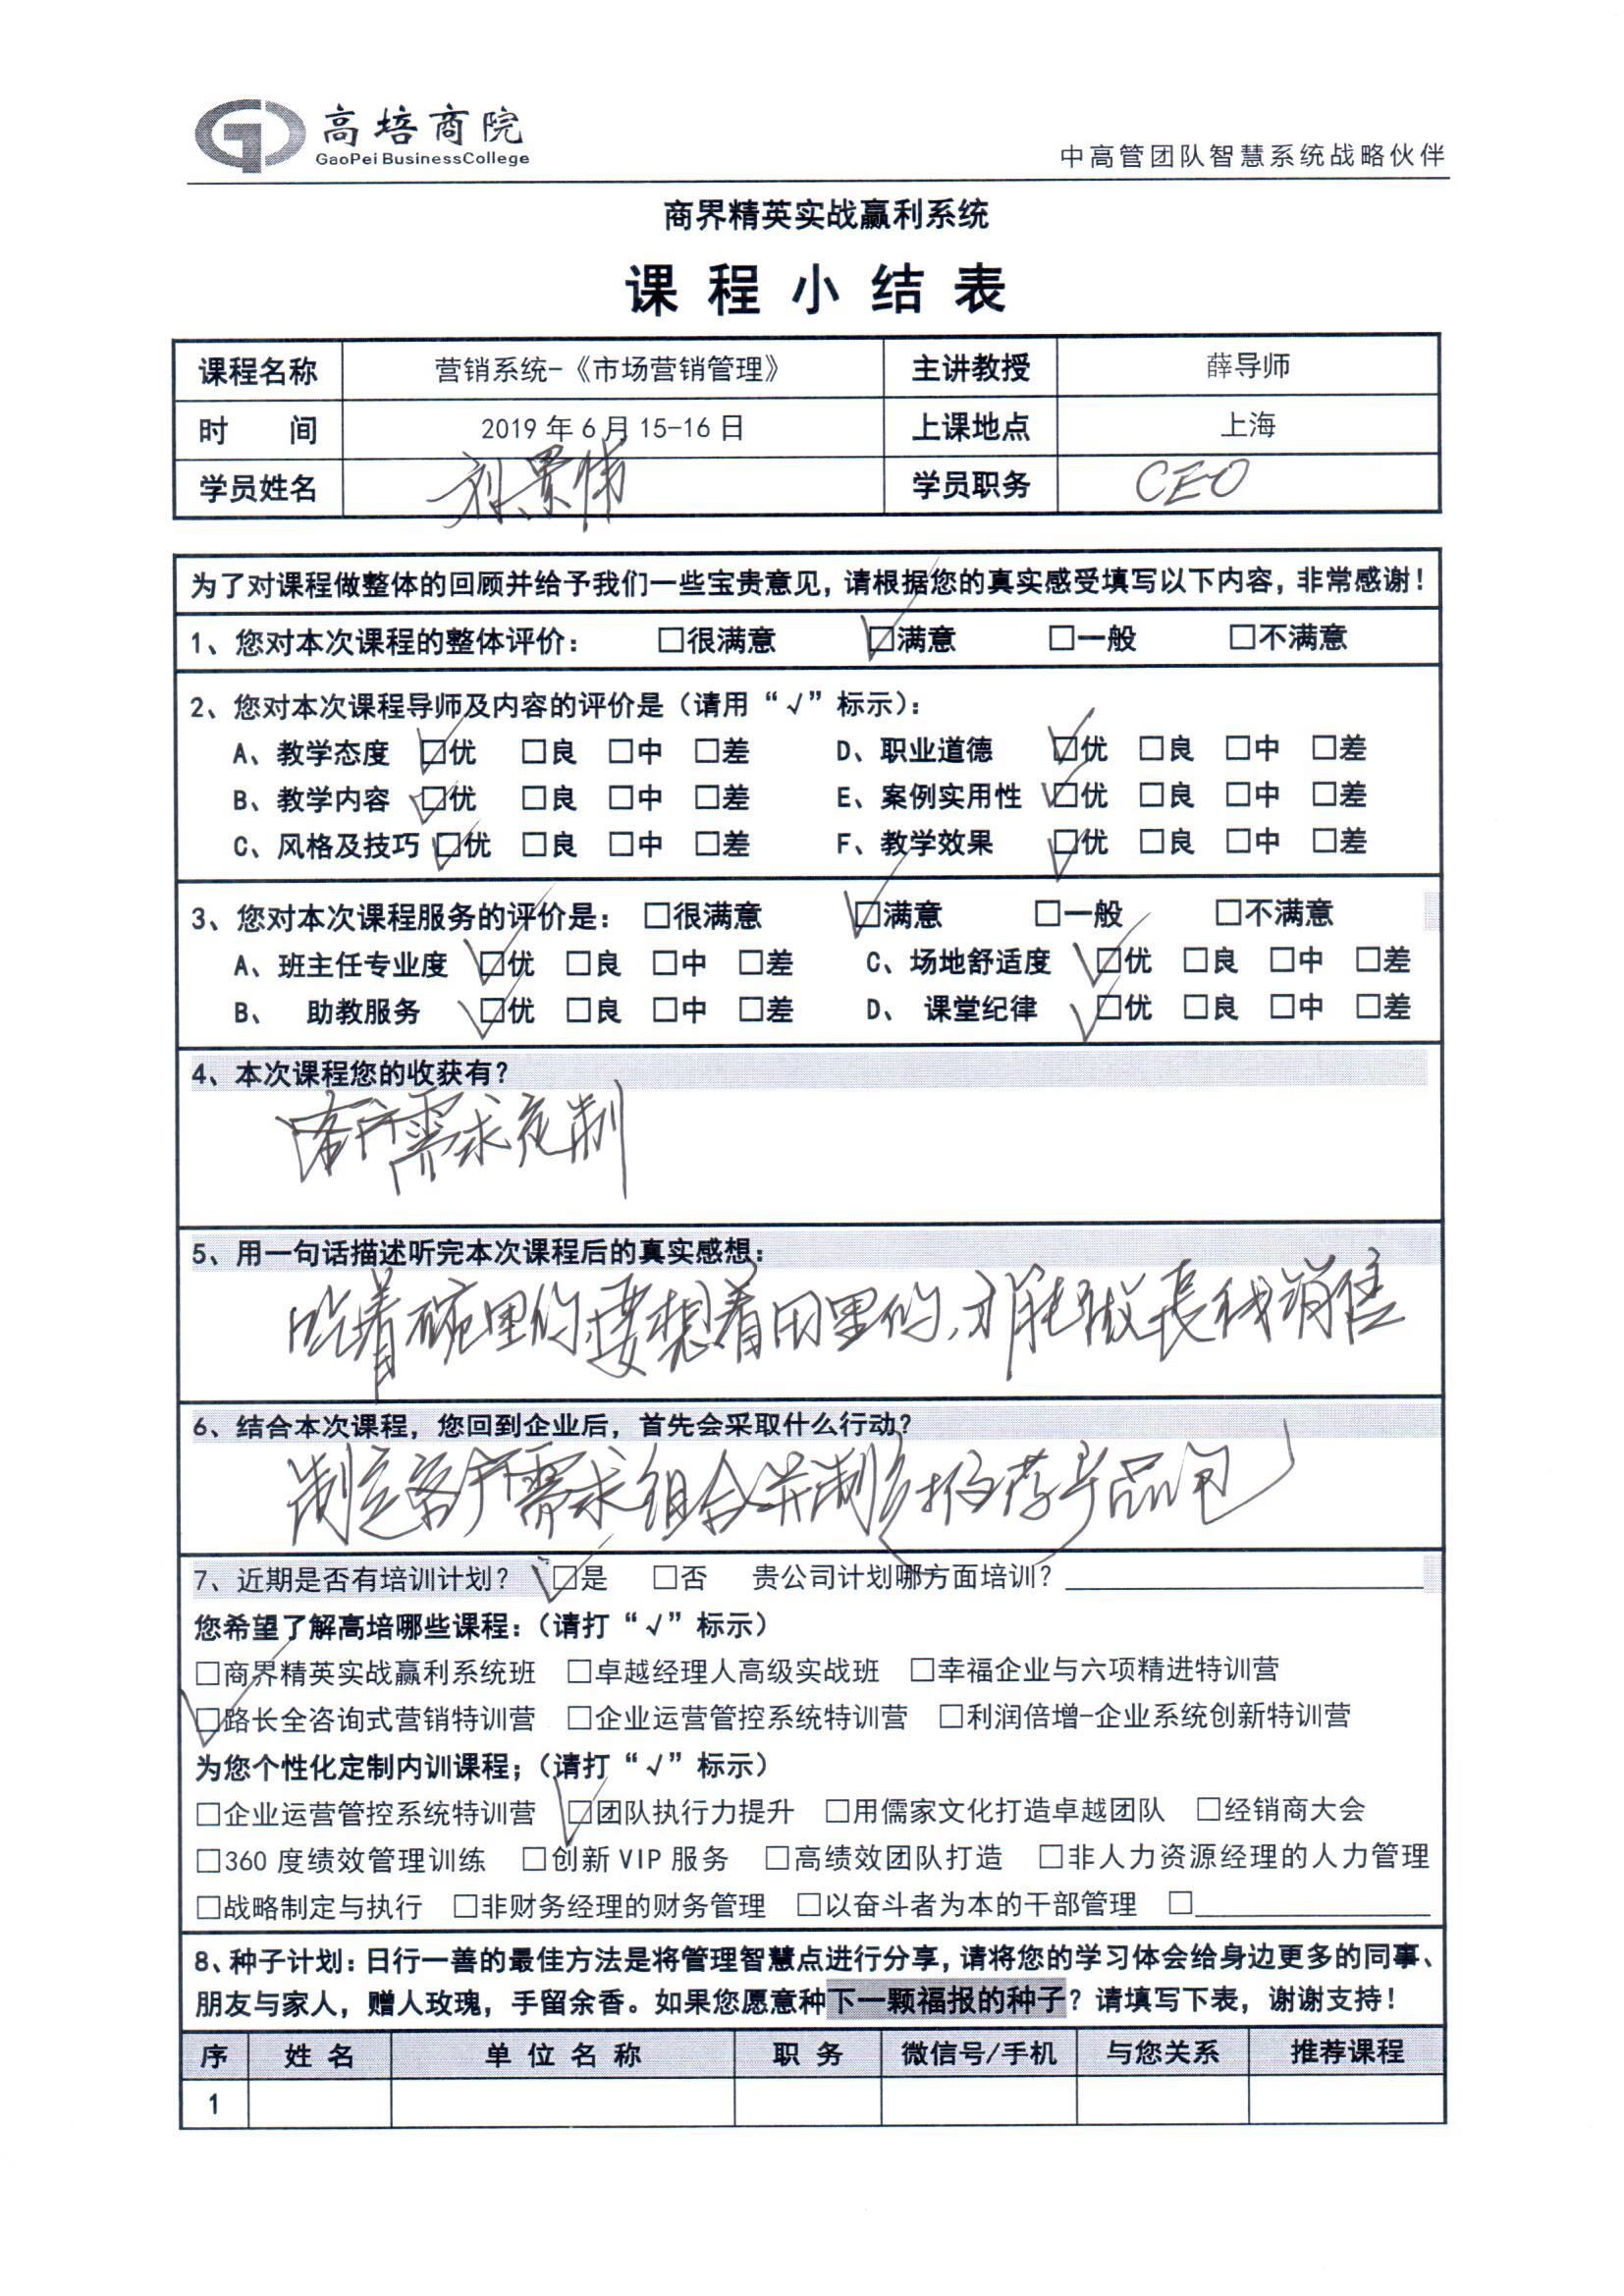 高培商院
GaoPei BusinessCollege
中高管团队智慧系统战略伙伴
商界精英实战赢利系统
课程小结表
课程名称 营销系统-《市场营销管理》 主讲教授 薛导师
时 间 2019年6月15-16日 上课地点 上海
学员姓名 学员职务 CEO
为了对课程做整体的回顾并给予我们一些宝贵意见，请根据您的真实感受填写以下内容，非常感谢！
1、您对本次课程的整体评价： □很满意 ☑满意 □一般 □不满意
2、您对本次课程导师及内容的评价是（请用“√”标示）：
A、教学态度 ☑优 □良 □中 □差 D、职业道德 ☑优 □良 □中 □差
B、教学内容 ☑优 □良 □中 □差 E、案例实用性 ☑优 □良 □中 □差
C、风格及技巧 ☑优 □良 □中 □差 F、教学效果 ☑优 □良 □中 □差
3、您对本次课程服务的评价是： □很满意 ☑满意 □一般 □不满意
A、班主任专业度 ☑优 □良 □中 □差 C、场地舒适度 ☑优 □良 □中 □差
B、 助教服务 ☑优 □良 □中 □差 D、 课堂纪律 ☑优 □良 □中 □差
4、本次课程您的收获有？
客户需求定制
5、用一句话描述听完本次课程后的真实感想：
吃着碗里的，要想着田里的，才能做长线销售
6、结合本次课程，您回到企业后，首先会采取什么行动？
制定客户需求组合并制定推荐产品包
7、近期是否有培训计划？ ☑是 □否 贵公司计划哪方面培训？
您希望了解高培哪些课程：（请打“√”标示）
□商界精英实战赢利系统班 □卓越经理人高级实战班 □幸福企业与六项精进特训营
☑路长全咨询式营销特训营 □企业运营管控系统特训营 □利润倍增-企业系统创新特训营
为您个性化定制内训课程；（请打“√”标示）
□企业运营管控系统特训营 ☑团队执行力提升 □用儒家文化打造卓越团队 □经销商大会
□360度绩效管理训练 □创新VIP服务 □高绩效团队打造 □非人力资源经理的人力管理
□战略制定与执行 □非财务经理的财务管理 □以奋斗者为本的干部管理 □
8、种子计划：日行一善的最佳方法是将管理智慧点进行分享，请将您的学习体会给身边更多的同事、
朋友与家人，赠人玫瑰，手留余香。如果您愿意种下一颗福报的种子？请填写下表，谢谢支持！
序 姓名 单位名称 职务 微信号/手机 与您关系 推荐课程
1